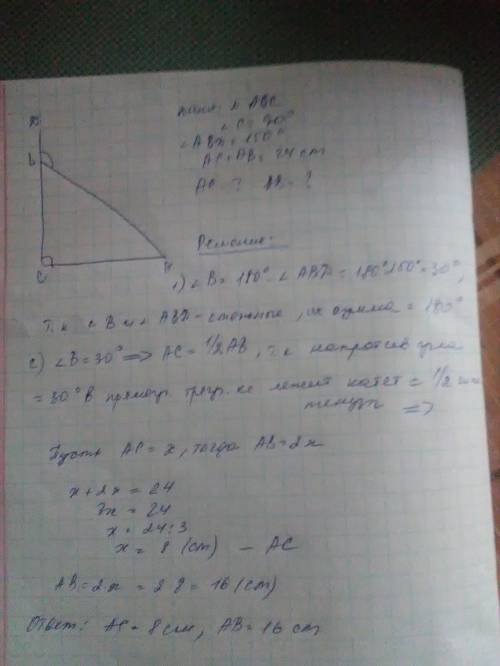 D
B
C
A
Дано: Δ ABC
∠C = 90°
∠ABD = 150°
AC + AB = 24 cm
AC - ? AB - ?
Решение:
1) ∠B = 180° - ∠ABD = 180° - 150° = 30°,
т.к ∠B и ∠ABD - смежные, их сумма = 180°
2) ∠B = 30° => AC = 1/2 AB, т.к напротив угла
= 30° в прямоуг. треуг-ке лежит катет = 1/2
=>
Пусть AC = x, тогда AB = 2x
x + 2x = 24
3x = 24
x = 24 : 3
x = 8 (cm) - AC
AB = 2x = 2·8 = 16 (cm)
Ответ: AC = 8 см, AB = 16 cm